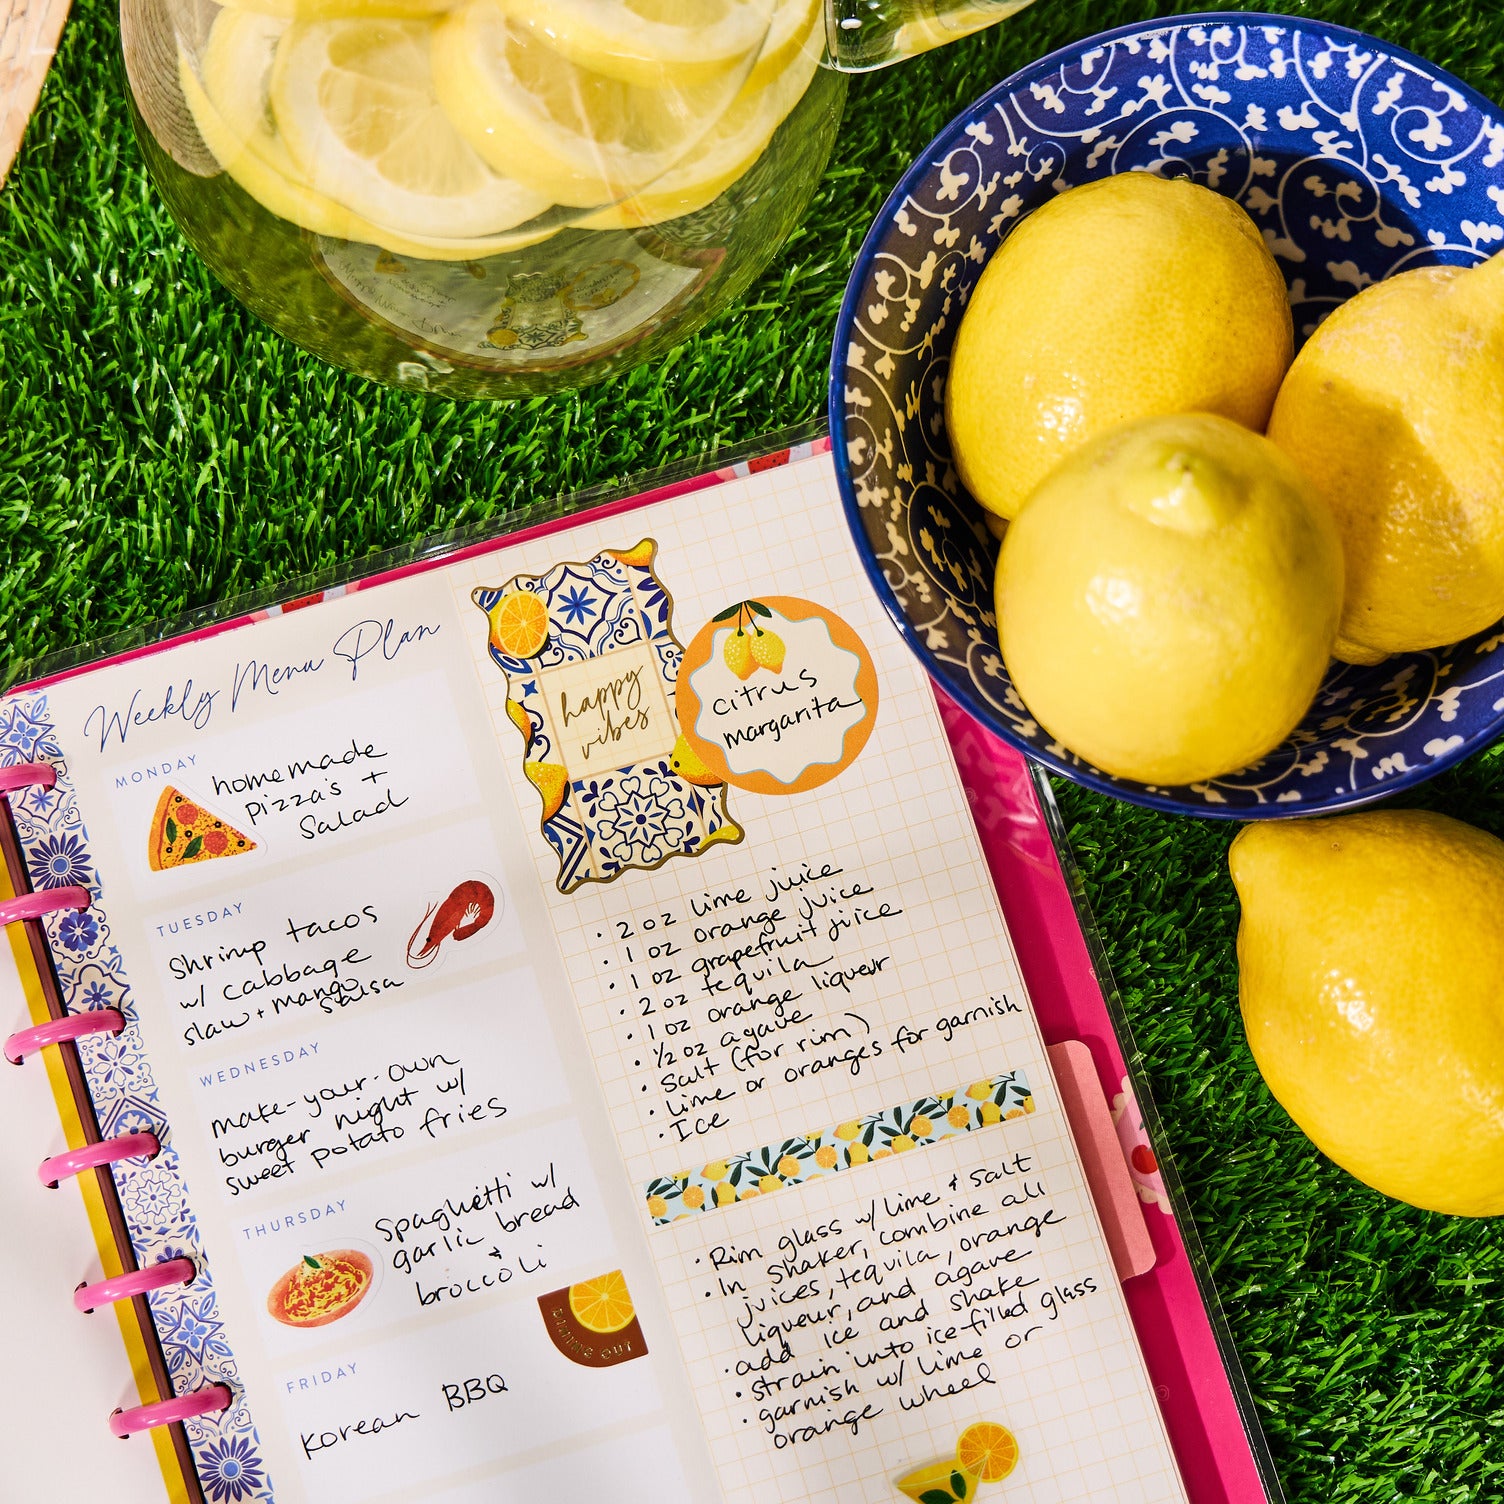 Weekly Menu Plan
MONDAY
homemade
pizza's +
salad
TUESDAY
Shrimp tacos
w/ cabbage
slaw + mango
salsa
WEDNESDAY
make-your-own
burger night w/
sweet potato fries
THURSDAY
spaghetti w/
garlic bread
+
broccoli
DINING OUT
FRIDAY
Korean BBQ
happy
vibes
citrus
margarita
• 2 oz lime juice
• 1 oz orange juice
• 1 oz grapefruit juice
• 2 oz tequila
• 1 oz orange liqueur
• ½ oz agave
• Salt (for rim)
• lime or oranges for garnish
• Ice
• Rim glass w/ lime + salt
• In shaker, combine all
juices, tequila, orange
liqueur, and agave
• add ice and shake
• strain into ice filled glass
• garnish w/ lime or
orange wheel